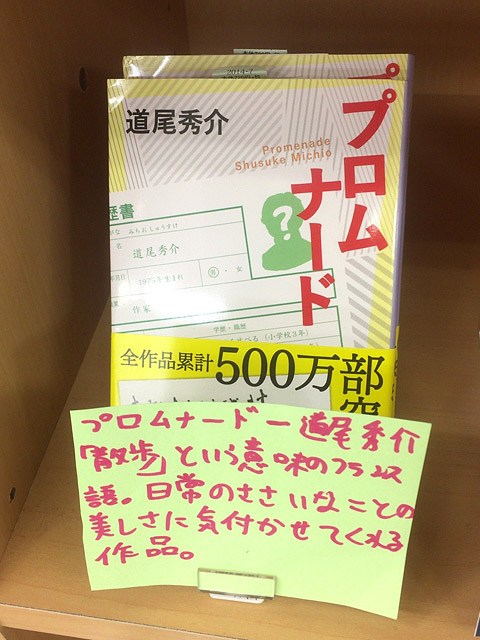 2014-7
プロムナード
道尾秀介
Promenade
Shusuke Michio
歴書
みちおしゅうすけ
名 道尾秀介
1975年生まれ 男・女
作家
学歴・職歴
(小学校3年)
全作品累計500万部突
プロムナード ー道尾秀介
「散歩」という意味のフランス
語。日常のささいなことの
美しさに気付かせてくれる
作品。